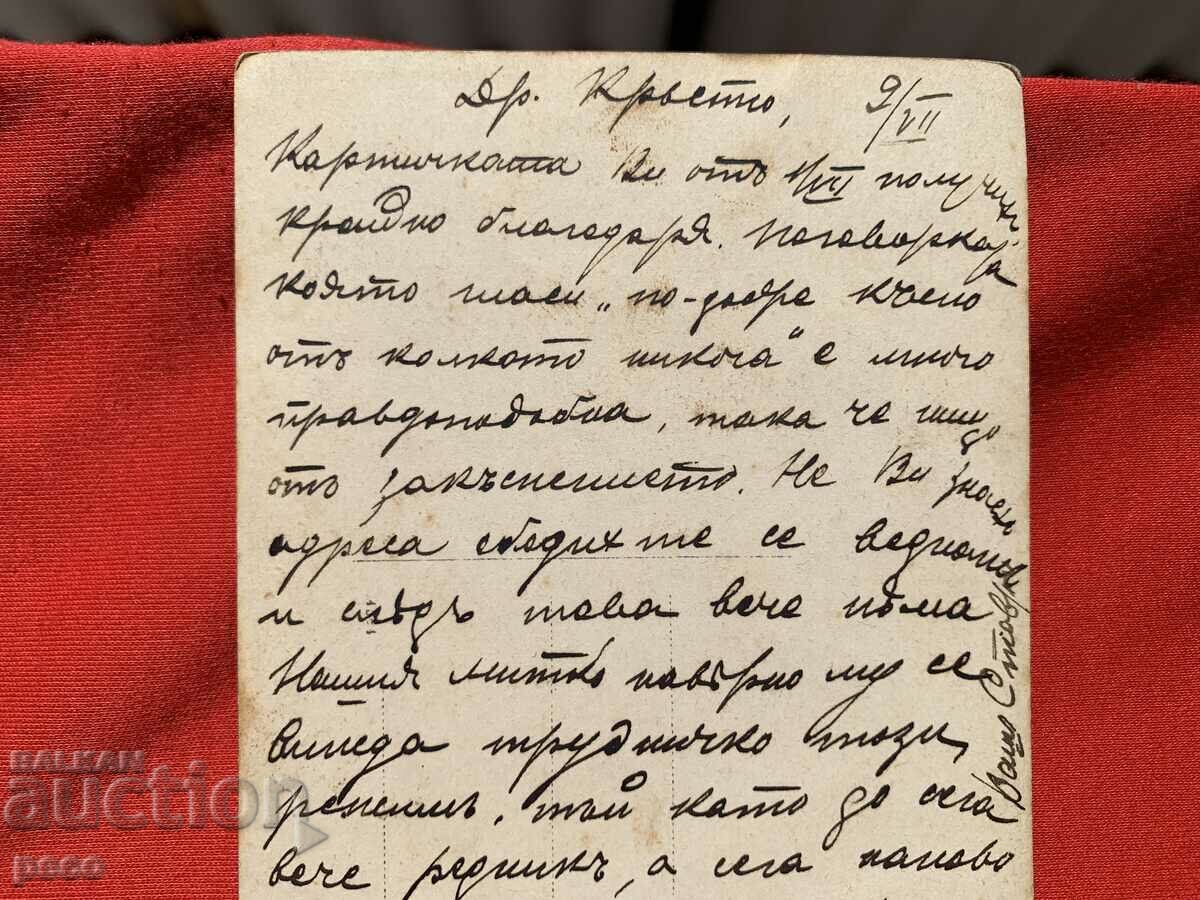 Др. Кръсто, 9/VII
Картичката Ви отъ 1/VII получих
крайно благодаря. Поговорката
която гласи „по-добре късно
отъ колкото никога" е много
правдоподобна, така че нищо
отъ закъснението. Не Ви знаехъ
адреса обадихте се веднажъ
и слѣдъ това вече нѣма
Нашия Митко навѣрно му се
вижда трудничко този
режимъ, тъй като до сега
вече редникъ, а сега наново
Вашъ Ставри
BALKAN
auction
peco